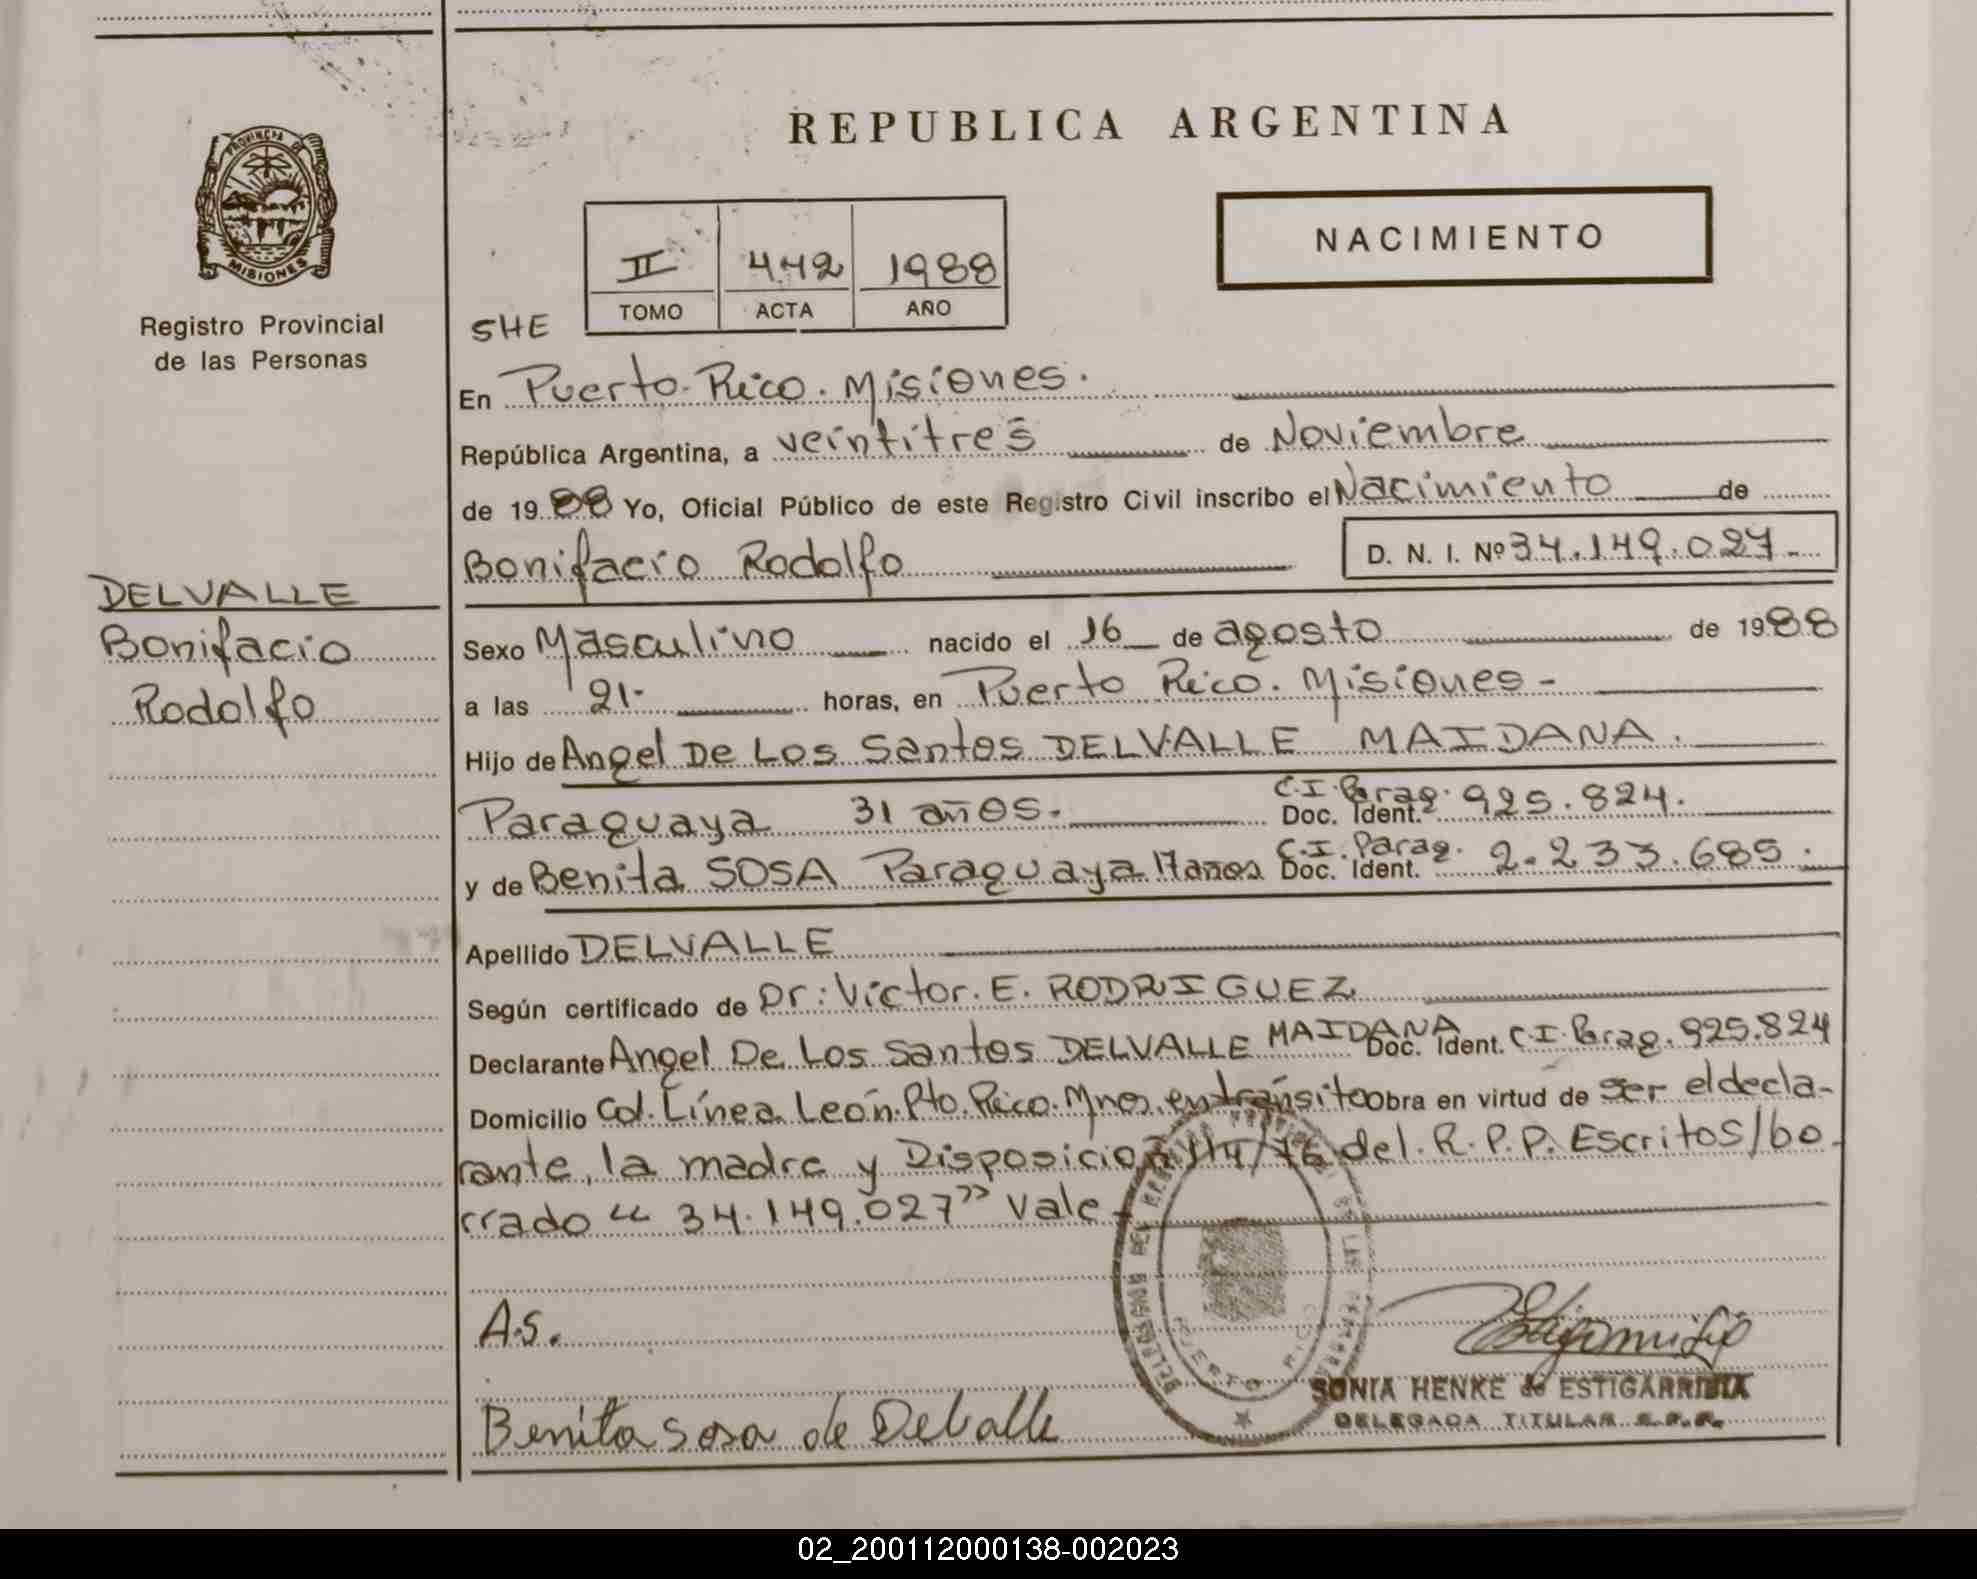 REPUBLICA ARGENTINA
PROVINCIA DE
MISIONES
Registro Provincial
de las Personas
NACIMIENTO
II 442 1988
TOMO ACTA AÑO
SHE
En Puerto Rico. Misiones.
República Argentina, a veintitres de Noviembre
de 1988 Yo, Oficial Público de este Registro Civil inscribo el Nacimiento de
Bonifacio Rodolfo D. N. I. Nº 34.149.027.-
DELVALLE
Bonifacio
Rodolfo
Sexo Masculino nacido el 16 de agosto de 1988
a las 21. horas, en Puerto Rico. Misiones-
Hijo de Angel De Los Santos DELVALLE MAIDANA.
Paraguaya 31 años. Doc. Ident. C.I. Parag. 925.824.
y de Benita SOSA Paraguaya 17 años Doc. Ident. C.I. Parag. 2.233.685.
Apellido DELVALLE
Según certificado de Dr: Víctor. E. RODRIGUEZ
Declarante Angel De Los Santos DELVALLE MAIDANA Doc. Ident. C.I. Parag. 925.824
Domicilio Col. Línea León. Pto. Rico. Mnes. en tránsito Obra en virtud de ser el decla-
rante, la madre y Disposición 114/76 del R.P.P. Escritos/bo-
rrado "34.149.027" Vale-
A.S.
PUERTO RICO
Benita Sosa de Delvalle
SONIA HENKE de ESTIGARRIBIA
DELEGADA TITULAR R.P.P.
02_200112000138-002023